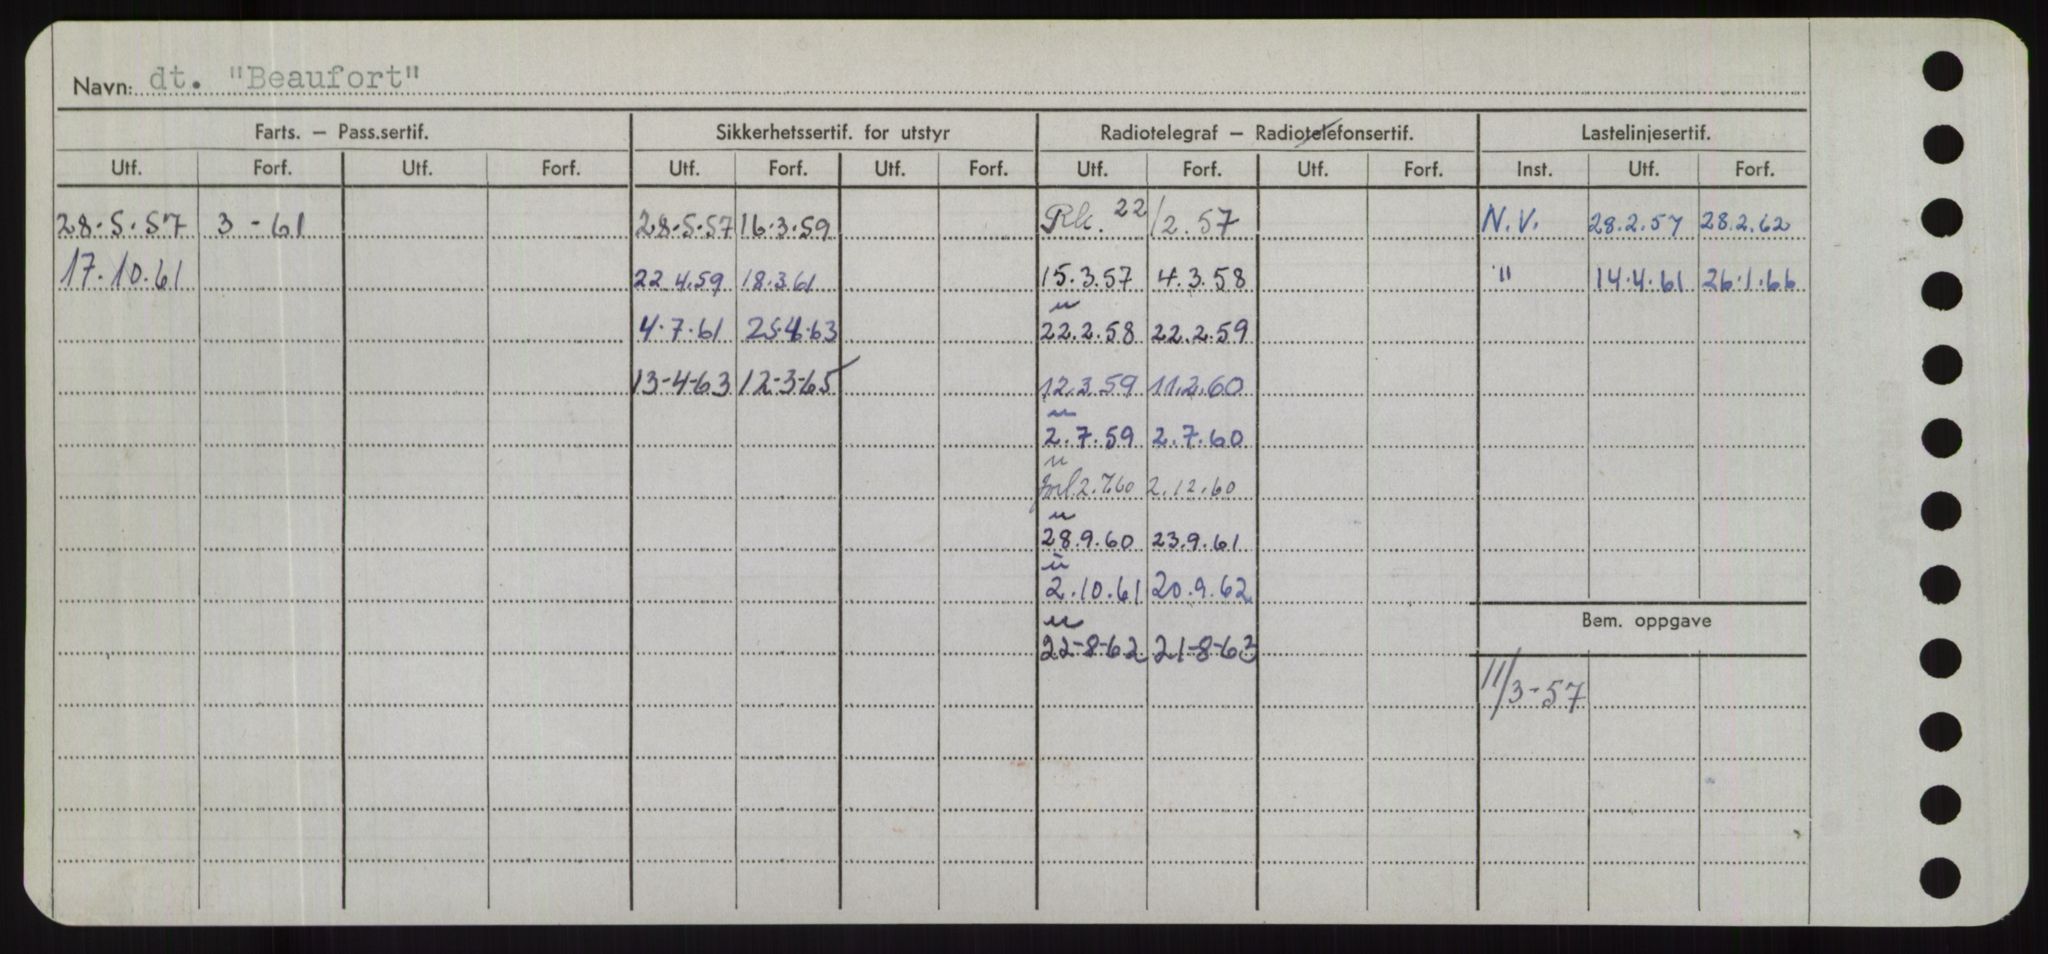 Navn: dt. "Beaufort"
Farts. — Pass.sertif. Sikkerhetssertif. for utstyr Radiotelegraf — Radiotelefonsertif. Lastelinjesertif.
Utf. Forf. Utf. Forf. Utf. Forf. Utf. Forf. Utf. Forf. Utf. Forf. Inst. Utf. Forf.
28.5.57 3 - 61 28.5.57 16.3.59 22/2.57 N.V. 28.2.57 28.2.62
17.10.61 22.4.59 18.3.61 15.3.57 4.3.58 " 14.4.61 26.1.66
u
4.7.61 25.4.63 22.2.58 22.2.59
13-4-63 12-3-65 12.3.59 11.2.60
u
2.7.59 2.7.60
u
forl. 2.7.60 2.12.60
u
28.9.60 23.9.61
u
2.10.61 20.9.62
Bem. oppgave
u
22-8-62 21-8-63
11/3-57